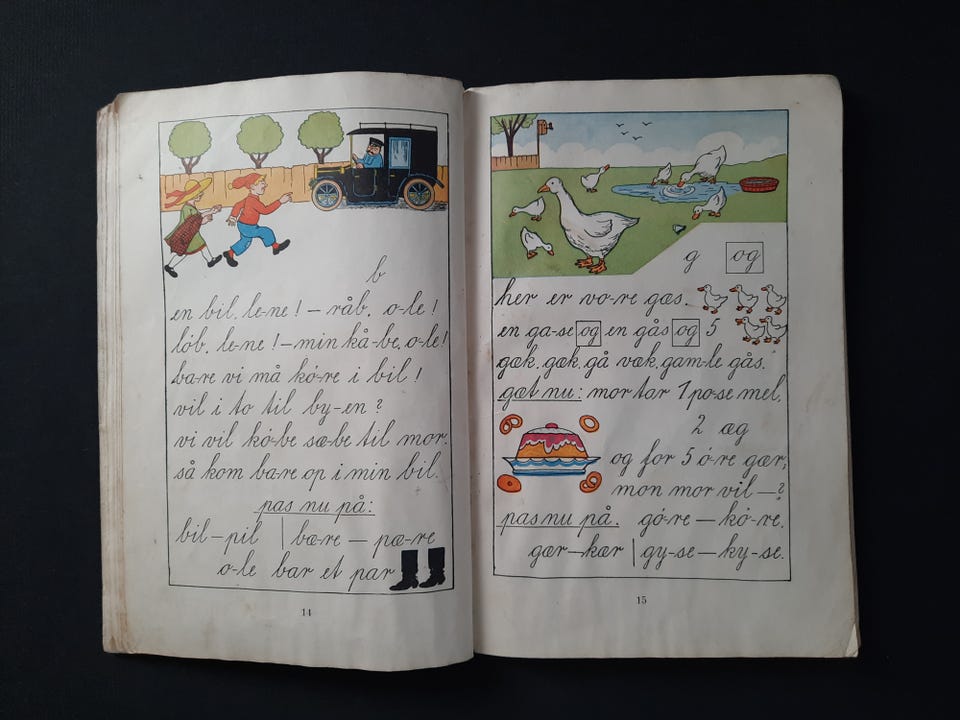 b
en bil, le-ne! – råb, o-le!
løb, le-ne! – min kå-be, o-le!
ba-re vi må kø-re i bil!
vil i to til by-en?
vi vil kø-be sæ-be til mor.
så kom ba-re op i min bil.
pas nu på:
bil – pil | bæ-re – pæ-re
o-le bar et par
14
g og
her er vo-re gæs.
en ga-se og en gås og 5
gæk, gæk, gå væk, gam-le gås.
gæt nu: mor tar 1 po-se mel,
2 æg
og for 5 ø-re gær,
mon mor vil –?
pas nu på. gø-re – kø-re.
gær – kær | gy-se – ky-se.
15